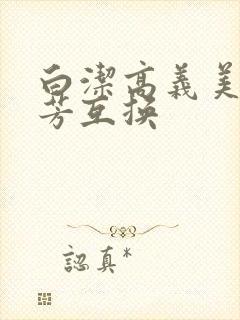 白潔高義美
芳互換
認真*